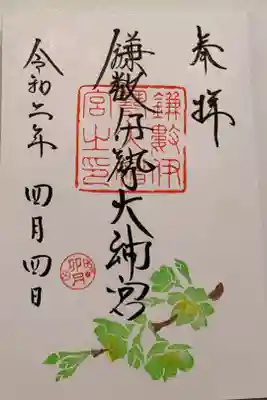 奉拝
鎌数伊勢大神宮
令和六年 四月四日
鎌數伊
勢大神
宮之印
卯月